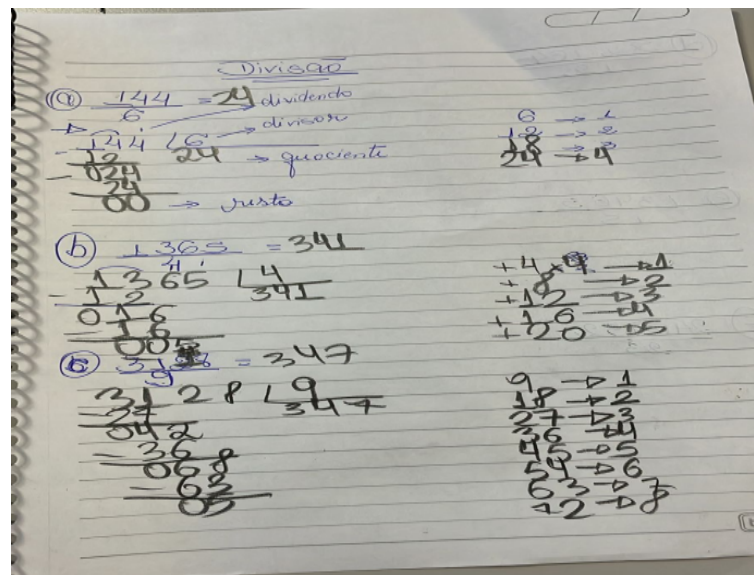 Divisão
a) 144/6 = 24 dividendo
144 6 → divisor
- 12 24 → quociente
024
- 24
00 → resto
6 → 1
12 → 2
18 → 3
24 → 4
b) 1365/4 = 341
1365 4
- 12 341
016
- 16
005
+4 → 1
+ 8 → 2
+12 → 3
+16 → 4
+20 → 5
c) 3128/9 = 347
3128 9
- 27 347
042
- 36
068
- 63
05
9 → 1
18 → 2
27 → 3
36 → 4
45 → 5
54 → 6
63 → 7
72 → 8